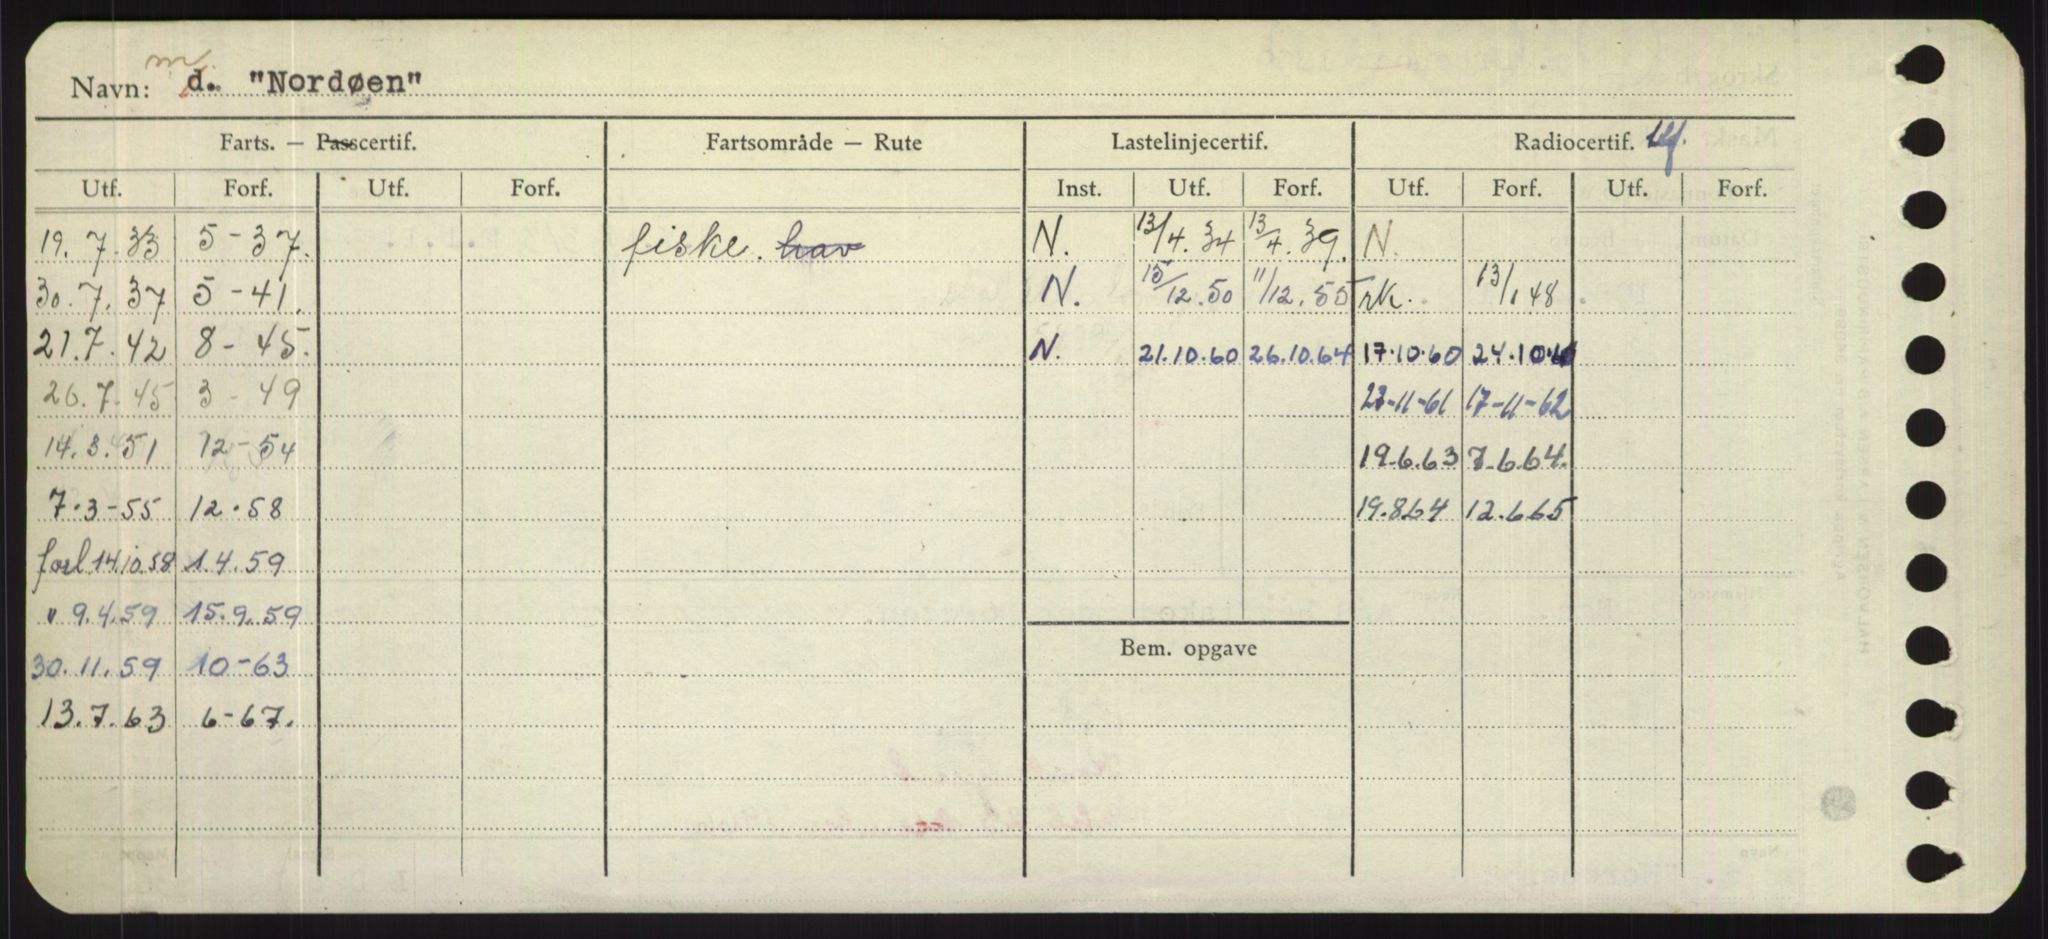 Navn: m d. "Nordøen"
Farts. — Passcertif. Fartsområde — Rute Lastelinjecertif. Radiocertif. tlf.
Utf. Forf. Utf. Forf. Inst. Utf. Forf. Utf. Forf. Utf. Forf.
19.7.33 5-37. fiske. hav N. 13/4.34 13/4.39. N.
30.7.37 5-41. N. 15/12.50 11/12.55 rk. 13/1 48
21.7.42 8-45. N. 21.10.60 26.10.64 17.10.60 24.10.
26.7.45 3-49 17-11-62
14.3.51 12-54 19.6.63 7.6.64.
7.3-55 12.58 19.8.64 12.6.65
forl 14.10.58 1.4.59
" 9.4.59 15.9.59
30.11.59 10-63 Bem. opgave
13.7.63 6-67.